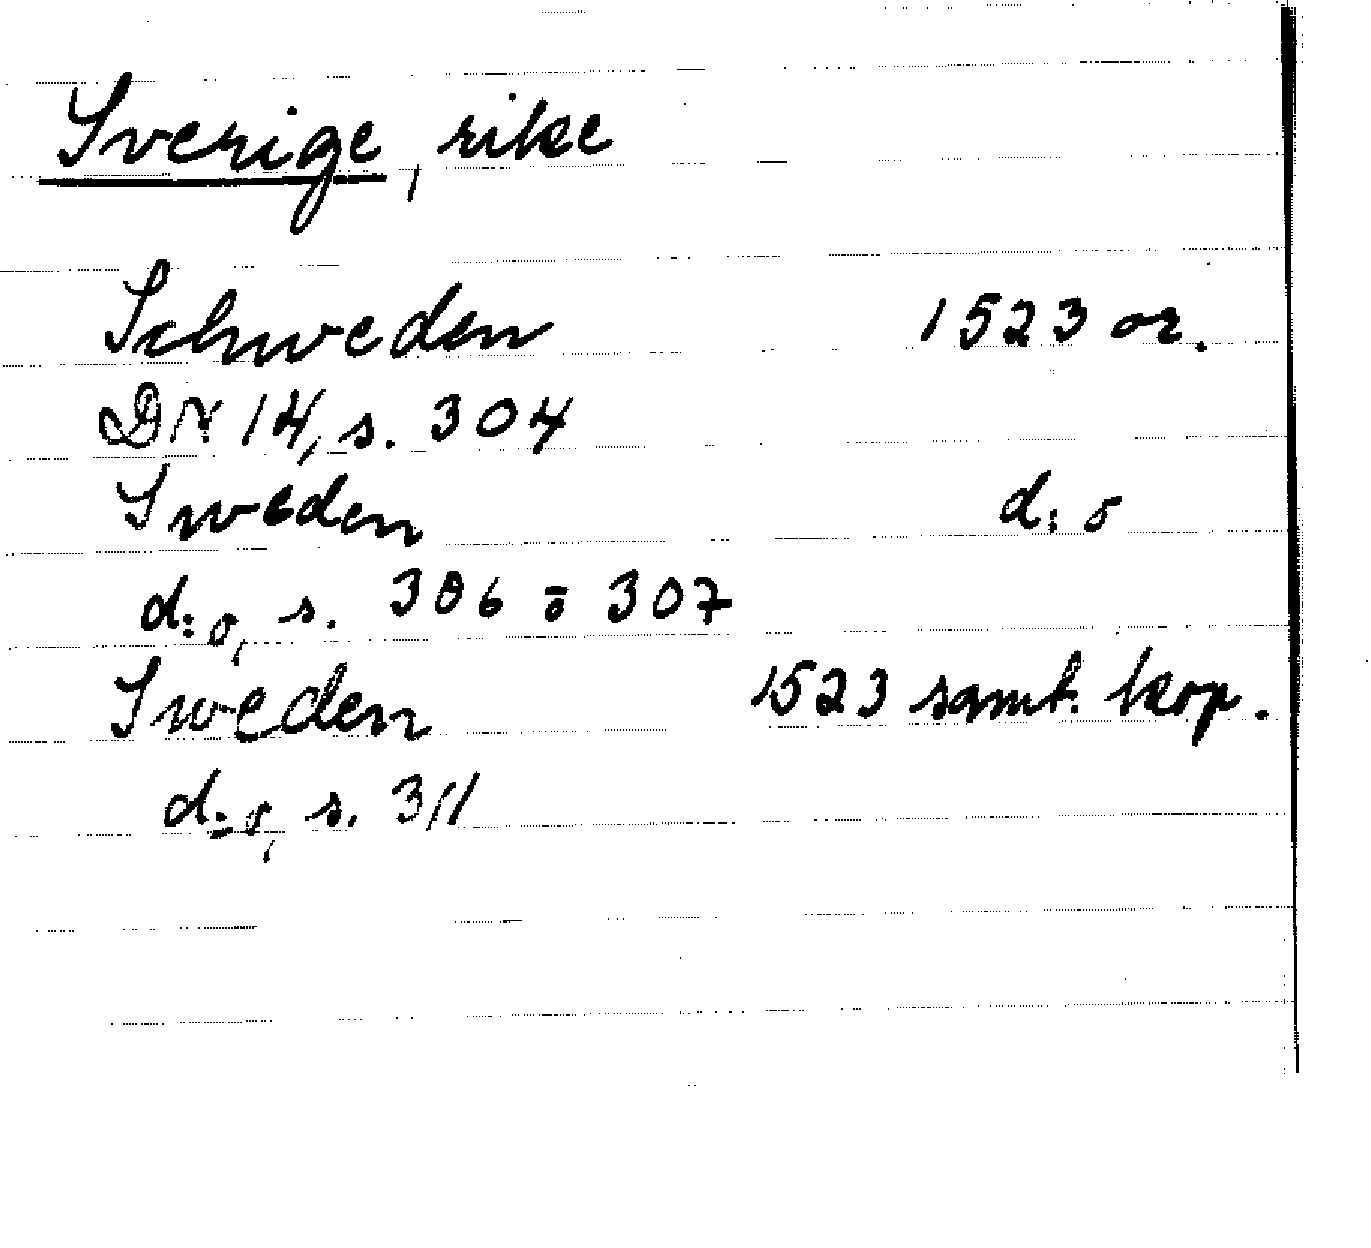 Sverige, rike
Schweden 1523 or.
DN 14, s. 304
Sweden d:o
d:o, s. 306 o 307
Sweden 1523 samt. kop.
d:o, s. 311